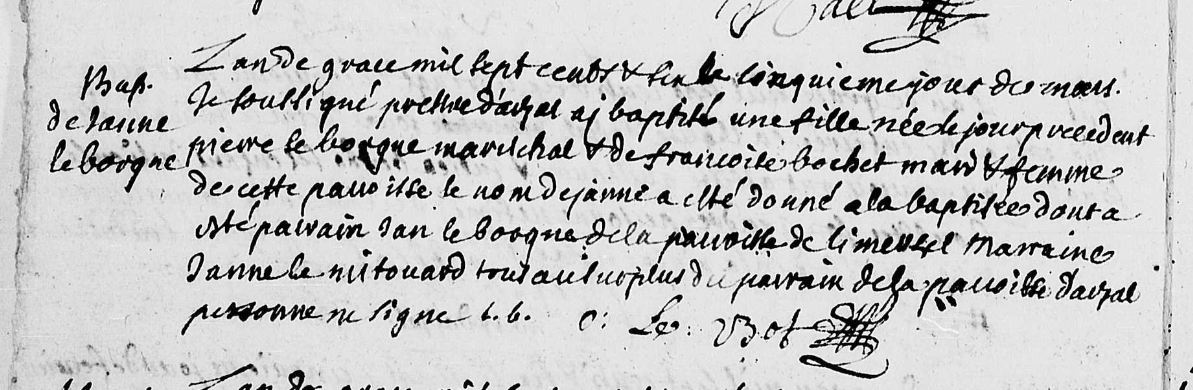 Bap.
de Janne
le borgne
L'an de grace mil sept cents & six le cinquieme jour de mars
Je soussigné prestre d'arzal aj baptisé une fille née le jour precedent
pierre le borgne mareschal & de francoise bochet mari & femme
de cette parroisse le nom de janne a esté donné a la baptisée dont a
esté parrain Jan le borgne de la parroisse de limersel Marraine
Janne le mitouard tous au surplus du parrain de la parroisse d'arzal
personne ne signe t. b. O: Le: Bot